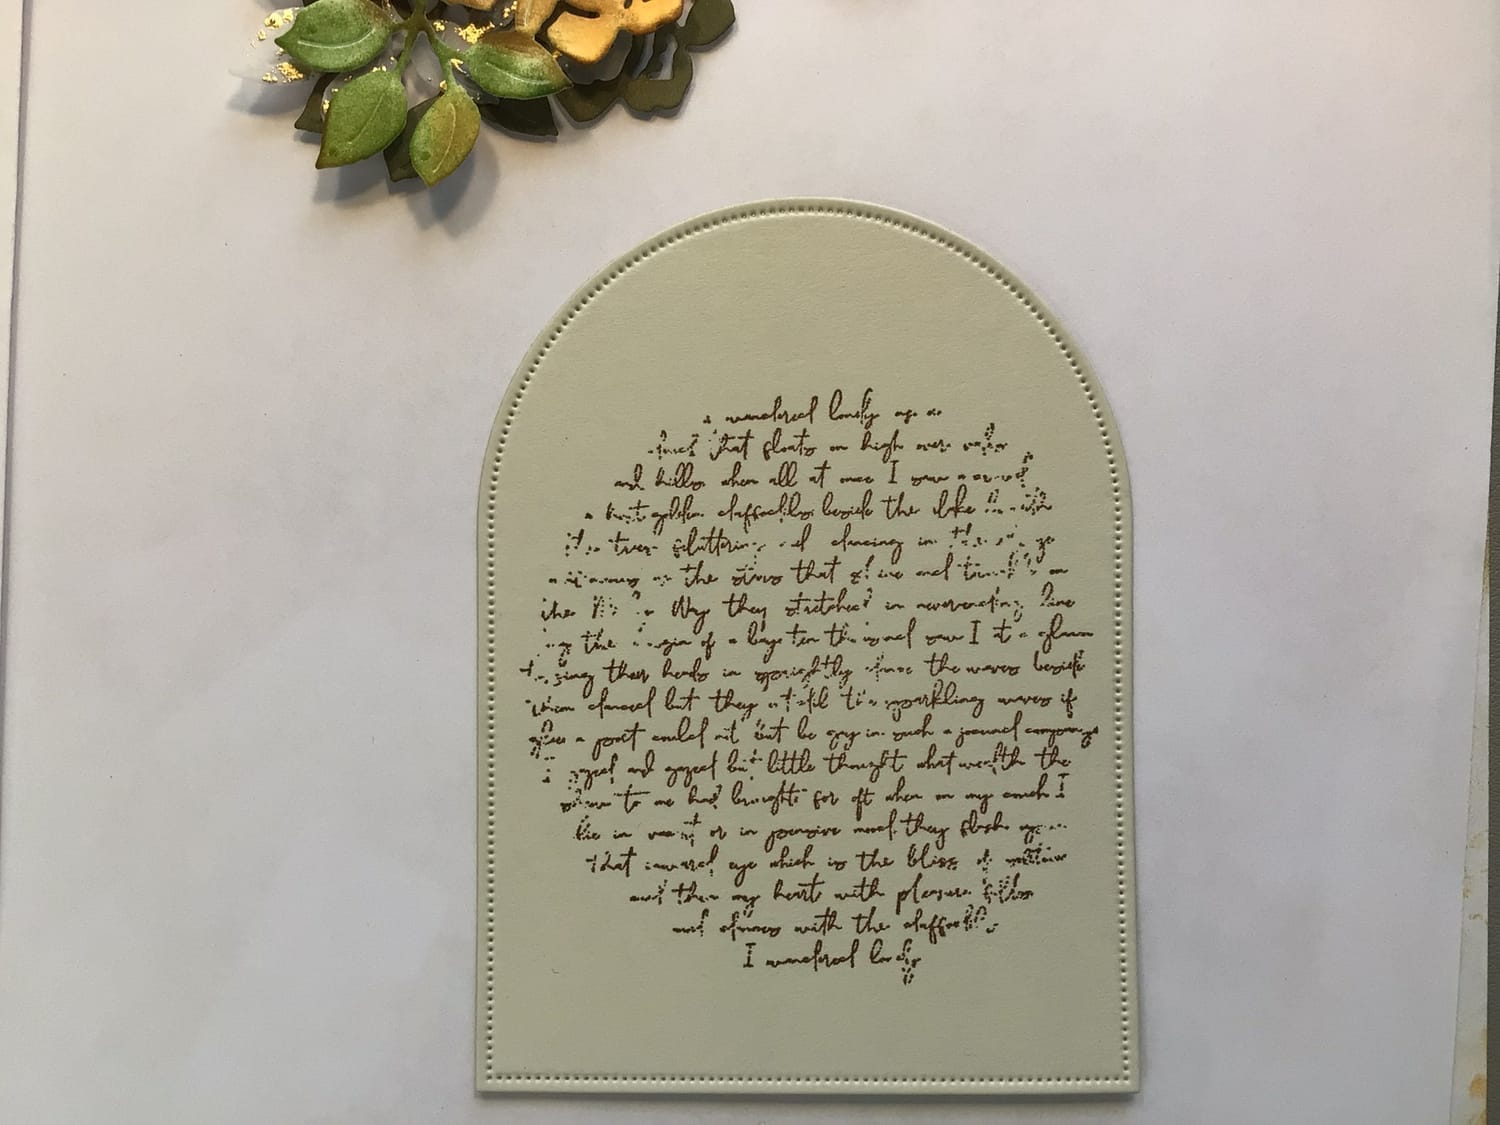 wandered lonely as a
that floats on high over vales
and hills when all at once I saw a crowd
a host golden daffodils beside the lake
trees fluttering and dancing in the
as the stars that shine and twinkle on
the Way they stretched in neverending line
the margin of a bay ten thousand saw I at a glance
tossing their heads in sprightly dance the waves beside
them danced but they out did the sparkling waves
a poet could not but be gay in such a jocund company
I gazed and gazed but little thought what wealth the
show to me had brought for oft when on my couch I
lie in vacant or in pensive mood they flash upon
that inward eye which is the bliss of
and then my heart with pleasure fills
and dances with the daffodils
I wandered lonely